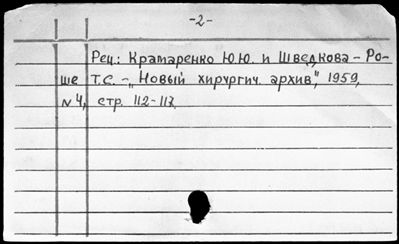 -2-
Рец.: Крамаренко Ю.Ю. и Шведкова-Ро-
ше Т.С. - „Новый хирургич. архив", 1959,
№4, стр. 112-117.